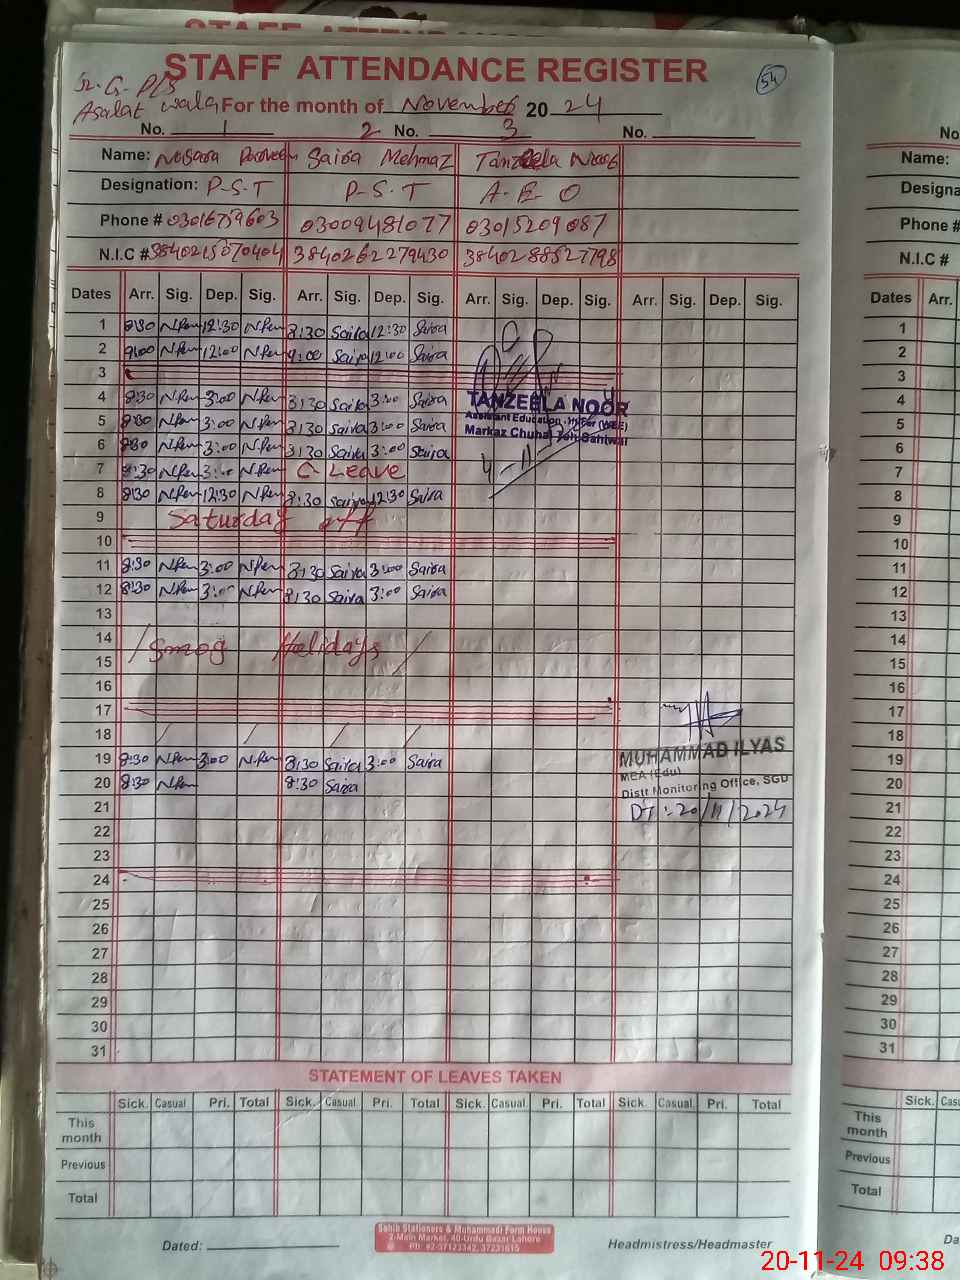 STAFF ATTENDANCE REGISTER
54
Asalat wala For the month of November 20 24
No. 1 2 No. 3 No.
Name: Nosara Parveen Saira Mehnaz Tanzeela Noor
Designation: P-S-T P-S-T A-E-O
Phone # 03016759603 03009481077 03015209087
N.I.C # 3840215070404 3840262279430 3840288527798
Dates Arr. Sig. Dep. Sig. Arr. Sig. Dep. Sig. Arr. Sig. Dep. Sig. Arr. Sig. Dep. Sig.
1 8:30 N.Pen 12:30 N.Pen 8:30 Saira 12:30 Saira
2 9:00 N.Pen 12:00 N.Pen 9:00 Saira 12:00 Saira
3
4 8:30 N.Pen 3:00 N.Pen 8:30 Saira 3:00 Saira
TANZEELA NOOR
5 8:30 N.Pen 3:00 N.Pen 8:30 Saira 3:00 Saira
Assistant Education (WEE)
Markaz Chuha
6 8:30 N.Pen 3:00 N.Pen 8:30 Saira 3:00 Saira
7 8:30 N.Pen 3:00 N.Pen C-Leave
4-11-
8 8:30 N.Pen 12:30 N.Pen 8:30 Saira 12:30 Saira
9 Saturday off
10
11 8:30 N.Pen 3:00 N.Pen 8:30 Saira 3:00 Saira
12 8:30 N.Pen 3:00 N.Pen 8:30 Saira 3:00 Saira
13
14 Smog Holidays
15
16
17
18
19 8:30 N.Pen 3:00 N.Pen 8:30 Saira 3:00 Saira
MUHAMMAD ILYAS
MEA (Edu)
20 8:30 N.Pen 8:30 Saira
Distt Monitoring Office, SGD
21 DT: 20/11/2024
22
23
24
25
26
27
28
29
30
31
STATEMENT OF LEAVES TAKEN
Sick. Casual Pri. Total Sick. Casual Pri. Total Sick. Casual Pri. Total Sick. Casual Pri. Total
This month
Previous
Total
Dated:
Sahib Stationers & Muhammadi Form House
2-Main Market, 40-Urdu Bazar Lahore
Ph: 042-37123342, 37231615
Headmistress/Headmaster
No
Name:
Designa
Phone #
N.I.C #
Dates Arr.
1
2
3
4
5
6
7
8
9
10
11
12
13
14
15
16
17
18
19
20
21
22
23
24
25
26
27
28
29
30
31
Sick. Cas
This month
Previous
Total
Da
20-11-24 09:38